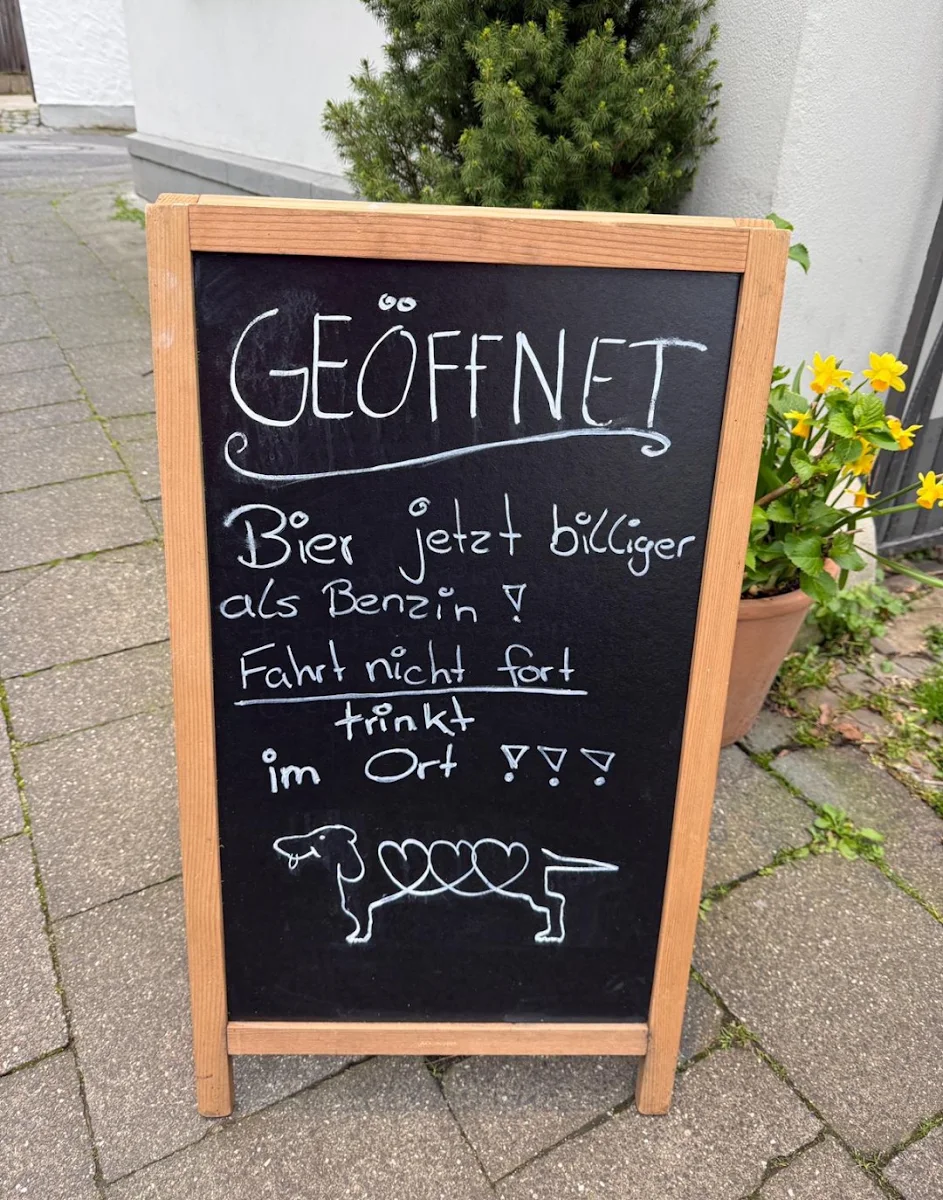 GEÖFFNET
Bier jetzt billiger
als Benzin !
Fahrt nicht fort
trinkt
im Ort !!!